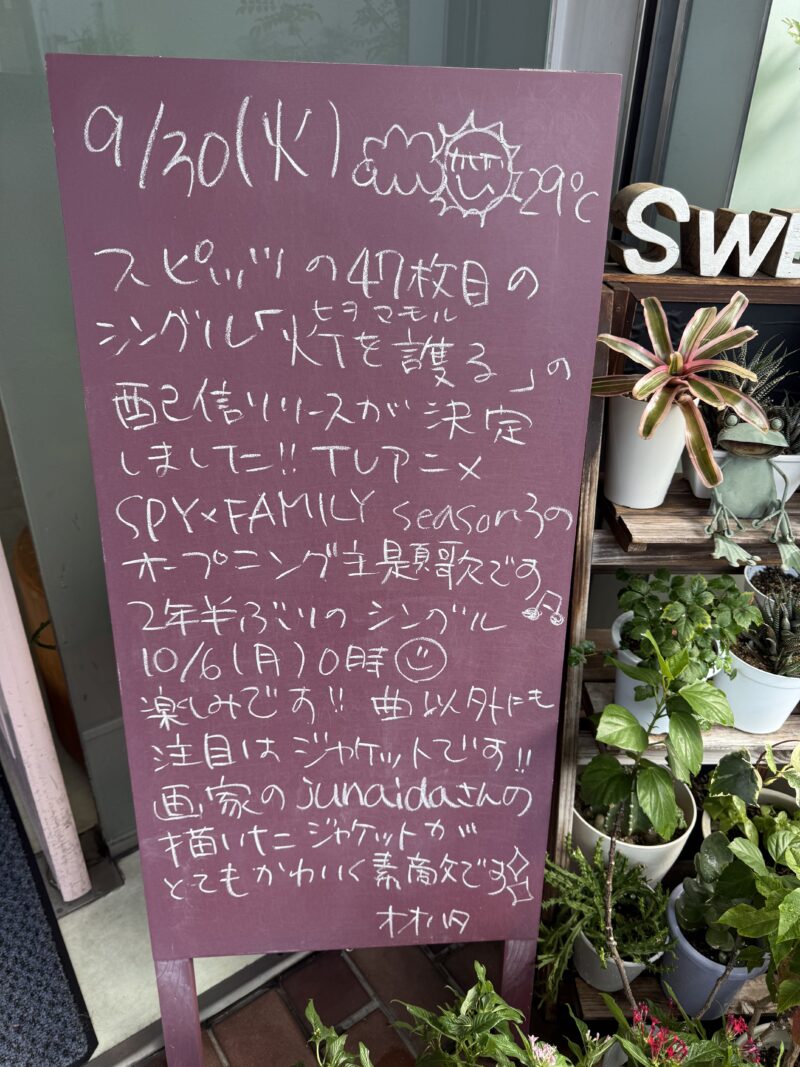 9/30(火) 29℃
スピッツの47枚目の
ヒヲマモル
シングル「灯を護る」の
配信リリースが決定
しました!! TVアニメ
SPY×FAMILY season3の
オープニング主題歌です♫
2年半ぶりのシングル
10/6(月)0時
楽しみです!! 曲以外にも
注目はジャケットです!!
画家のjunaidaさんの
描いたジャケットが
とてもかわいく素敵です
SWE